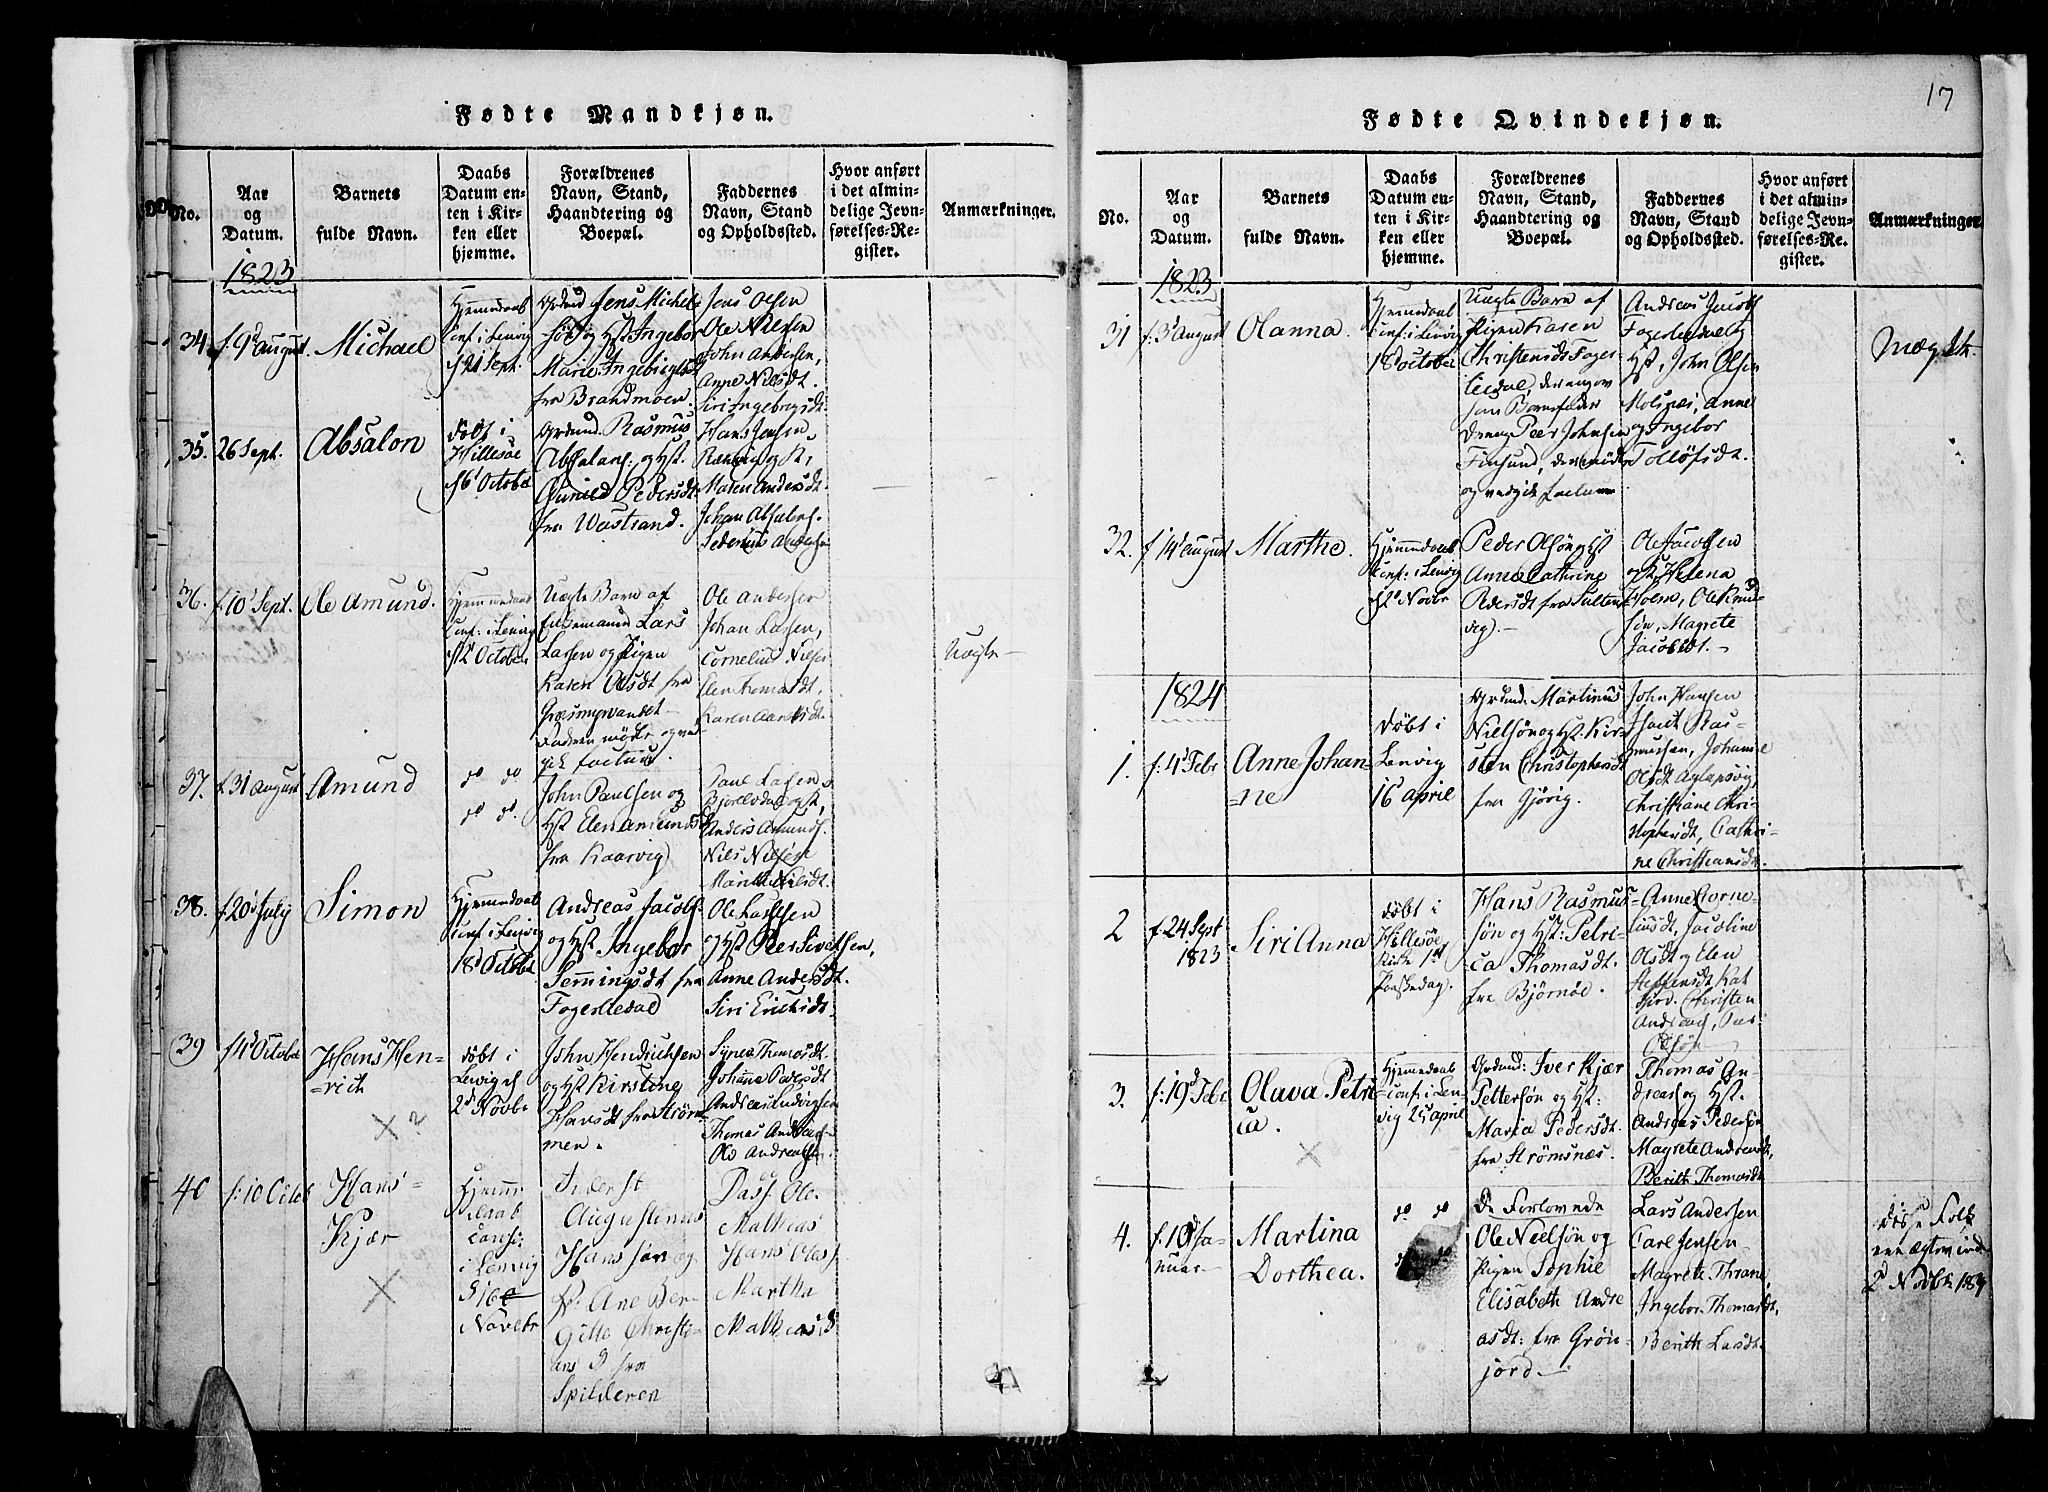 Fødte Mandkjøn.
No.
Aar
og
Datum.
Barnets
fulde Navn.
Daabs
Datum en-
ten i Kir-
ken eller
hjemme.
Forældrenes
Navn, Stand,
Haandtering og
Boepæl.
Faddernes
Navn, Stand
og Opholdssted.
Hvor anført
i det almin-
delige Jevn-
førelses-Re-
gister.
Anmærkninger.
1823
34.
f. 9d August
Michael
Hjemmedøbt
Conf: i Lenvig
d 21 Sept.
Jens Michels
søn og Hst Ingebor
Marie
fra Brandmoen.
Jens Olsen
Ole Nilsen
John Andersen,
Anne Nilsdt.
Siri Ingebrigsdt.
35.
26 Sept.
Absalon
døbt i
Hillesøe
d 6 October
Grdmd. Rasmus
Absalons. og Hst.
Gunild Pedersdt
fra Wastrand.
Hans Jensen
Maren Andersdt
Johan Absalons.
36.
f. 10 Sept.
Ole Amund.
Hjemmedøbt
Conf: i Lenvig
d 12 October
Uægte Barn af
Enkemand Lars
Larsen og Pigen
Karen Olsdt fra
Græsmyrvandet
Faderen mødte og ved
gik factum.
Ole Andersen
Johan Larsen,
Cornelius Nilsen
Elen Thomasdt,
Karen
Uægte
37.
f. 31 August
Amund
do do
do do.
John Paulsen og
Hst Elen Amundsdt
fra Kaarvig
Paul Larsen
Anders Amunds.
Nils Nilsen
38.
f. 20 July
Simon
Hjemmedøbt
Conf: i Lenvig
18d October
Andreas Jacobs.
og Hst Ingebor
Semmingsdt fra
Fogerledal
Ole Larsen
og Hst Peer Sivertsen,
Anne Andersdt.
Siri Erichsdt.
39
f 4d October
Hans Hen-
=rich
× ?
døbt i
Lenvig d
2d Novbr
John Hendrichsen
og Hst Kirstine
Hansdt fra Strøm
men.
Synes Thomasdt.
Johanne Pedersdt
Andreas Ludvigsen
Thomas Andreas.
Ole Andreasen.
40
f: 10 Octob
Hans
Kjær
×
Hjemme
daab
Conf:
i Lenvig
d 16
Novebr
Inderst
Augustinus
Hans søn og
K: Ane Ber-
Gitte Christi-
ans D fra
Spilderen
Ole
Mathias
Hans Olas.
Martha
Mathias D
17
Fødte Qvindekjøn.
No.
Aar
og
Datum.
Barnets
fulde Navn.
Daabs
Datum en-
ten i Kir-
ken eller
hjemme.
Forældrenes
Navn, Stand,
Haandtering og
Boepæl.
Faddernes
Navn, Stand
og Opholdssted.
Hvor anført
i det almin-
delige Jevn-
førelses-Re-
gister.
Anmærkninger
1823
31
f. 3d August
Olanna.
Hjemmedøbt
Conf: i Lenvig
18 October
Uægte Barn af
Pigen Karen
Christensdt Foger
ledal, der angav
som Barnefader
Dreng Peer Johnsen
Finsund, der mødte
og vedgik factum
Andreas Jacobs
Fogerledal og
Hst, John Olsen
Molsnæs, Anne
og Ingebor
Tolløfsdt.
32.
f 14d August
Marthe.
Hjemmedøbt
Conf: i Lenvig
d 2d Novbr
Peder Olsøn og Hst
Anne Cathrine
Pedersdt fra Sulten
vig.
Ole Jacobsen
og K Helena
Holm, Ole Knud
søn, Magrete
Jacobsdt.
1824
1.
f: 4d Febr
Anne Johan-
=ne
Døbt i
Lenvig
16 april
Grdmd. Martinus
Nielsøn og Hst. Kir-
sten Christophersdt
fra Gjøvig.
John Hansen
Ras-
mussen, Johanne
Olsdt
Christiane Chri-
stophersdt, Cathri-
ne Christiansdt.
2
f. 24 Sept
1823
Siri Anna
døbt i
Hillesøe
Kirke 1st
Paaskedag.
Hans Rasmus-
søn og Hst: Petri-
ca Thomasdt.
fra Bjørnøe.
Anne Corne-
liusdt, Jacoline
Olsdt og Elen
Steffensdt
Christen
Andreas,
3.
f: 19d Febr
Olava Petri-
ca.
×
Hjemmedøbt
Conf: i Len-
vig 25 april
Grdmd: Iver Kjær
Pettersøn og Hst:
Maria Pedersdt.
fra Strømsnæs.
Thomas An-
dreas og Hst.
Andreas Pedersøn
Magrete Andreasdt,
Berith Thomasdt
4.
f. 19d Ja-
nuar
Martina
Dorthea.
do do
do do
De Forlovede
Ole Nielsøn og
Pigen Sophie
Elisabeth Andre
asdt: fra Grøn-
jord.
Lars Andersen
Carl Jensen
Magrete Thrane,
Ingebor Thomasdt,
Berith Larsdt.
disse Folk
ere
2d Novbr